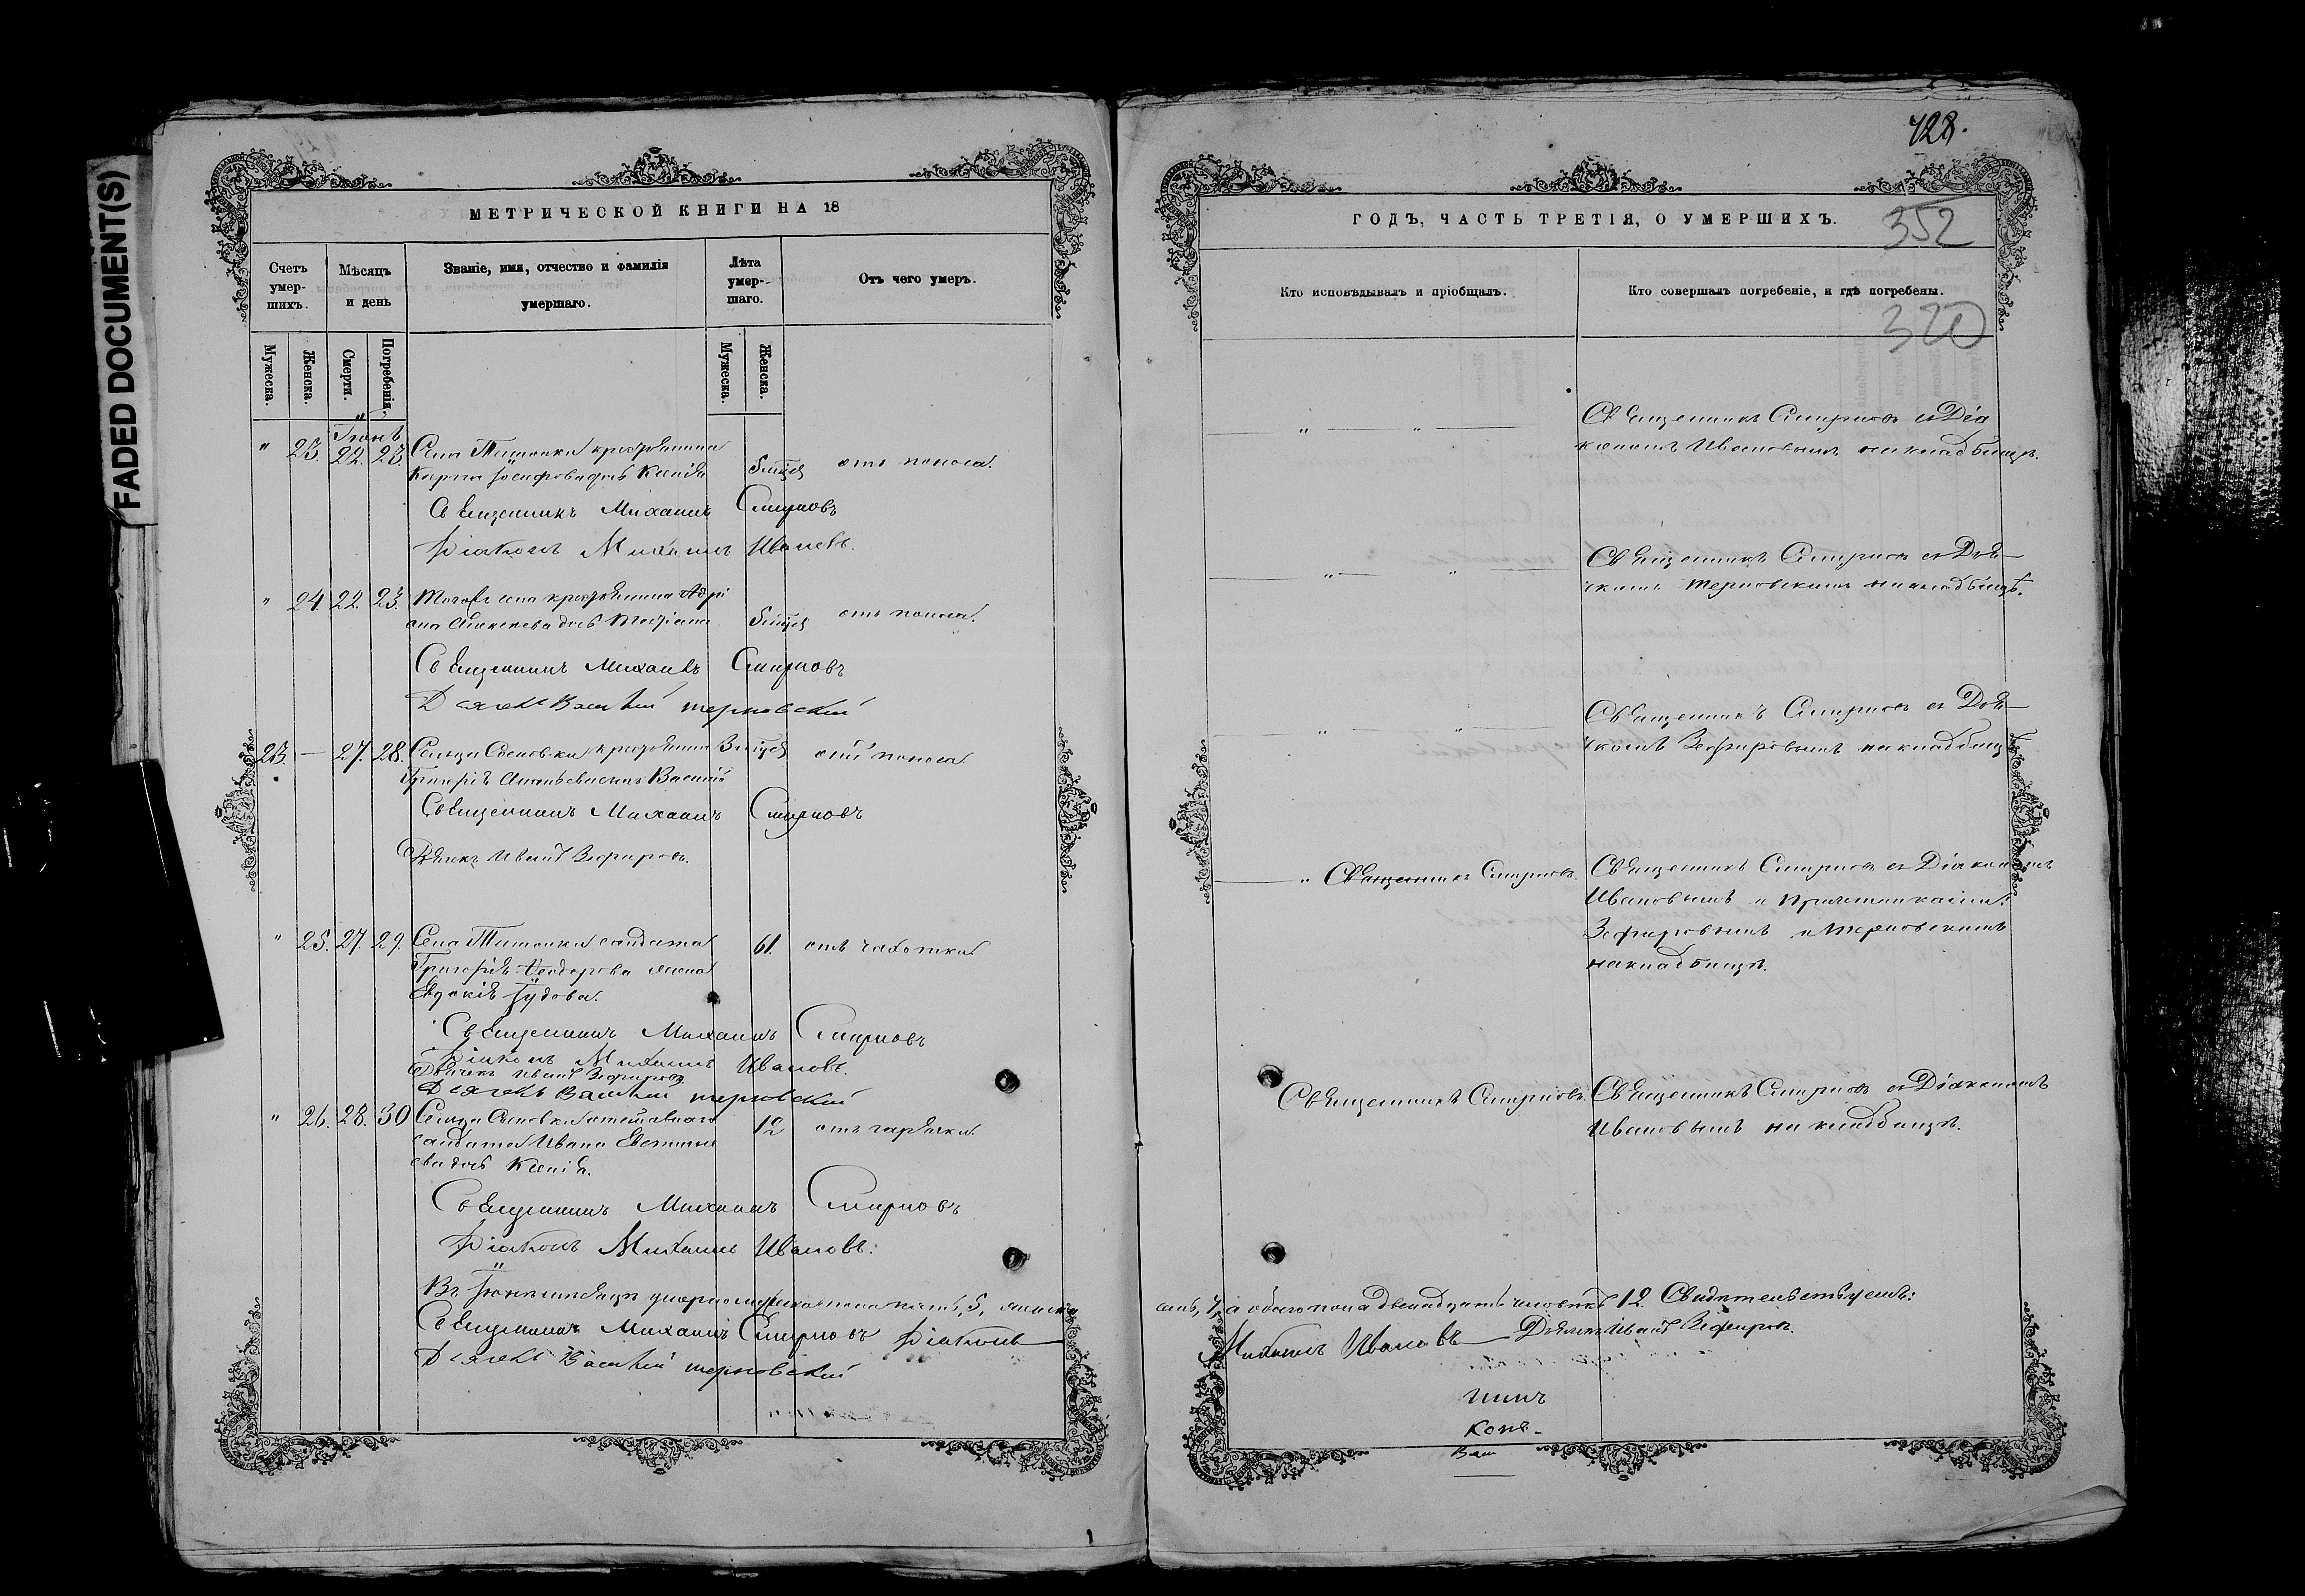 FADED DOCUMENT(S)
МЕТРИЧЕСКОЙ КНИГИ НА 18
Счетъ умер-шихъ.
Мѣсяцъ и день
Званіе, имя, отчество и фамилія умершаго.
Лѣта умер-шаго.
Отъ чего умеръ.
Мужеска.
Женска.
Смерти.
Погребенія.
Мужеска.
Женска.
Іюнь
" 23. 22. 23. Села крестьянина
Карпа Іосифова дочь Ксенія 5 отъ поноса.
Священникъ Михаилъ Смирновъ
Діаконъ Михаилъ Ивановъ.
" 24. 22. 23. села крестьянина Адрі
ана Алексеева дочь 5 отъ поноса.
Священникъ Михаилъ Смирновъ
Дьячекъ Василій Терновскій
23. — 27. 28. Сельца крестьянина 3 отъ поноса
Григорія сынъ Василій
Священникъ Михаилъ Смирновъ
Дьячекъ Иванъ Зефировъ.
" 25. 27. 29. Села солдата 61. отъ чахотки
Григорія Ѳеодорова жена
Евдокія Іудова.
Священникъ Михаилъ Смирновъ
Діаконъ Михаилъ Ивановъ.
Дьячекъ Иванъ Зефировъ
Дьячекъ Василій Терновскій
" 26. 28. 30 Сельца отставнаго 12 отъ горячки.
солдата Ивана
ева дочь Ксенія.
Священникъ Михаилъ Смирновъ
Діаконъ Михаилъ Ивановъ.
Въ Іюнѣ мѣсяцѣ умерло мужеска пола пять, 5, женска
Священникъ Михаилъ Смирновъ Діаконъ
Дьячекъ Василій Терновскій
728.
ГОДЪ, ЧАСТЬ ТРЕТІЯ, О УМЕРШИХЪ.
352
Кто исповѣдывалъ и пріобщалъ.
Кто совершалъ погребеніе, и гдѣ погребены.
320
" " Священникъ Смирновъ съ Діа
кономъ Ивановымъ на кладбищѣ.
" " Священникъ Смирновъ съ Дья—
чкомъ Терновскимъ на кладбищѣ.
" " Священникъ Смирновъ съ Дья—
чкомъ Зефировымъ на кладбищѣ
" Священникъ Смирновъ. Священникъ Смирновъ съ Діакономъ
Ивановымъ и Причетниками:
Зефировымъ и Терновскимъ
на кладбищѣ.
Священникъ Смирновъ. Священникъ Смирновъ съ Діакономъ
Ивановымъ на кладбищѣ.
семь, 7, а обоего пола двенадцать человѣкъ 12. Свидѣтельствуемъ:
Михаилъ Ивановъ — Дьячекъ Иванъ Зефировъ.